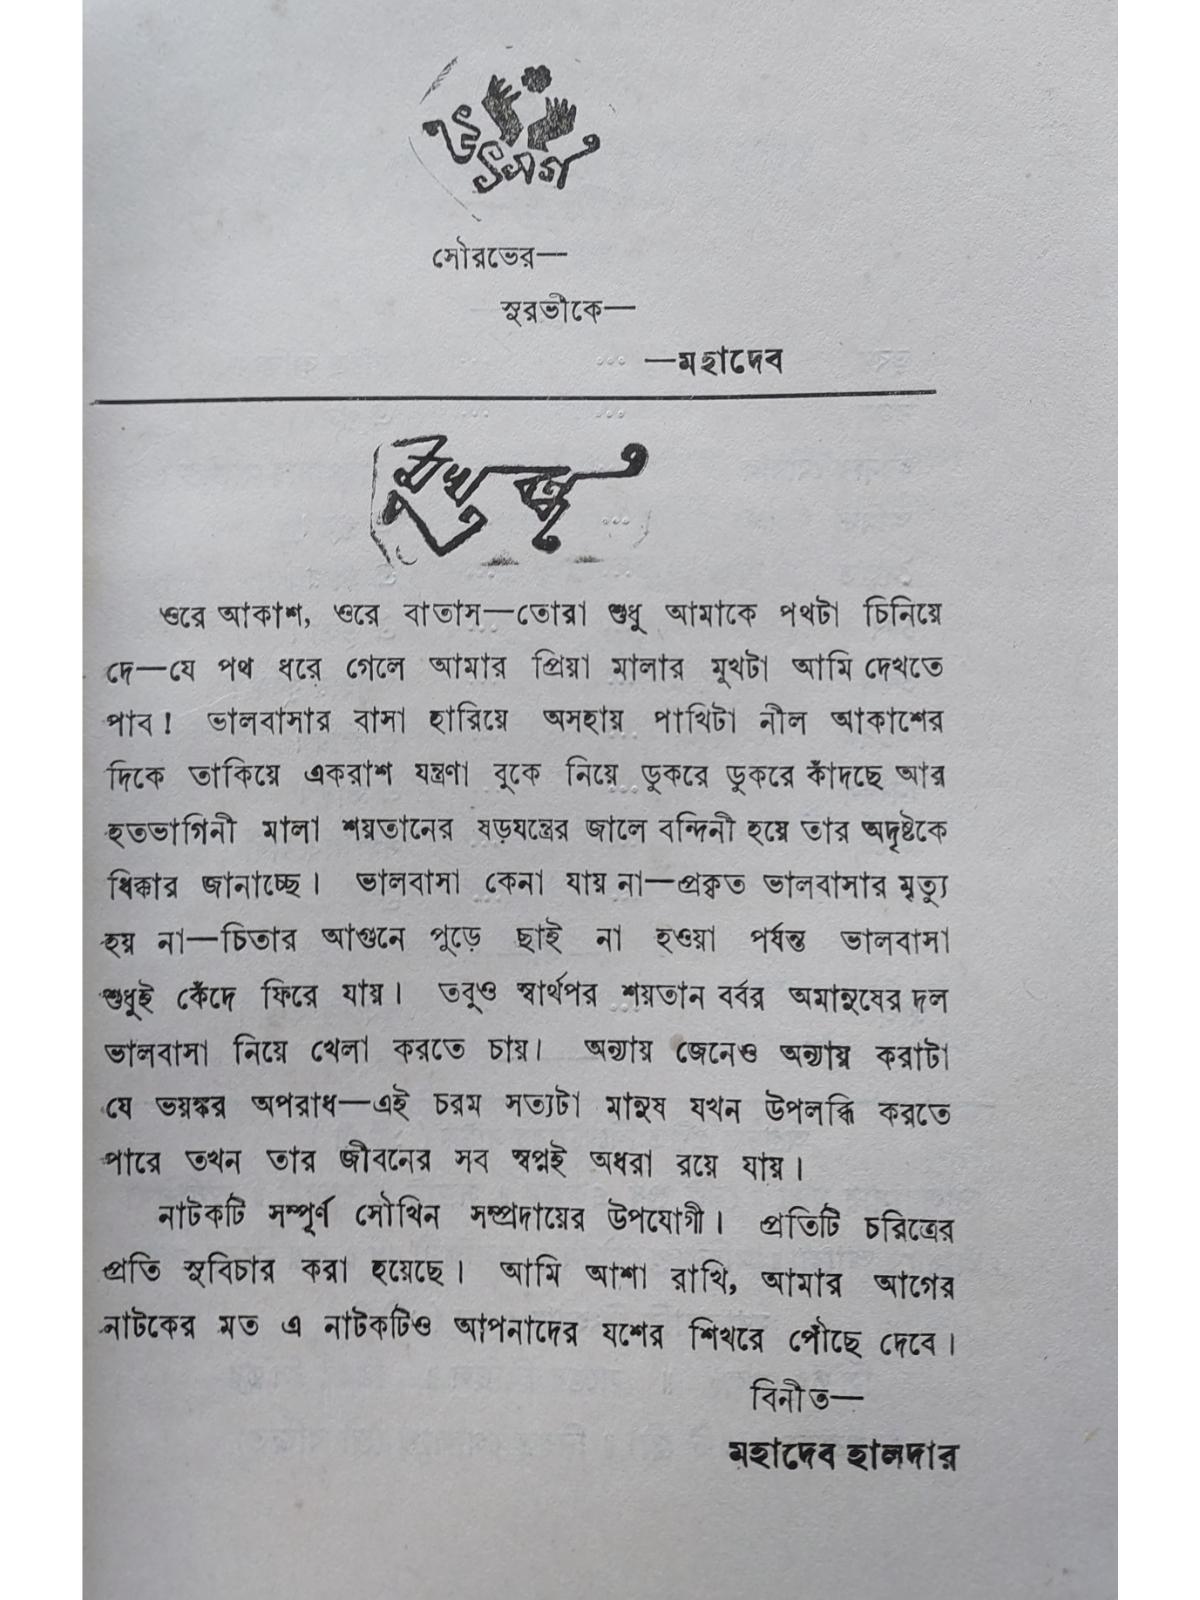 উৎসর্গ
সৌরভের—
সুরভীকে—
—মহাদেব
মুখবন্ধ
ওরে আকাশ, ওরে বাতাস—তোরা শুধু আমাকে পথটা চিনিয়ে
দে—যে পথ ধরে গেলে আমার প্রিয়া মালার মুখটা আমি দেখতে
পাব! ভালবাসার বাসা হারিয়ে অসহায় পাখিটা নীল আকাশের
দিকে তাকিয়ে একরাশ যন্ত্রণা বুকে নিয়ে ডুকরে ডুকরে কাঁদছে আর
হতভাগিনী মালা শয়তানের ষড়যন্ত্রের জালে বন্দিনী হয়ে তার অদৃষ্টকে
ধিক্কার জানাচ্ছে। ভালবাসা কেনা যায় না—প্রকৃত ভালবাসার মৃত্যু
হয় না—চিতার আগুনে পুড়ে ছাই না হওয়া পর্যন্ত ভালবাসা
শুধুই কেঁদে ফিরে যায়। তবুও স্বার্থপর শয়তান বর্বর অমানুষের দল
ভালবাসা নিয়ে খেলা করতে চায়। অন্যায় জেনেও অন্যায় করাটা
যে ভয়ঙ্কর অপরাধ—এই চরম সত্যটা মানুষ যখন উপলব্ধি করতে
পারে তখন তার জীবনের সব স্বপ্নই অধরা রয়ে যায়।
নাটকটি সম্পূর্ণ সৌখিন সম্প্রদায়ের উপযোগী। প্রতিটি চরিত্রের
প্রতি সুবিচার করা হয়েছে। আমি আশা রাখি, আমার আগের
নাটকের মত এ নাটকটিও আপনাদের যশের শিখরে পৌঁছে দেবে।
বিনীত—
মহাদেব হালদার